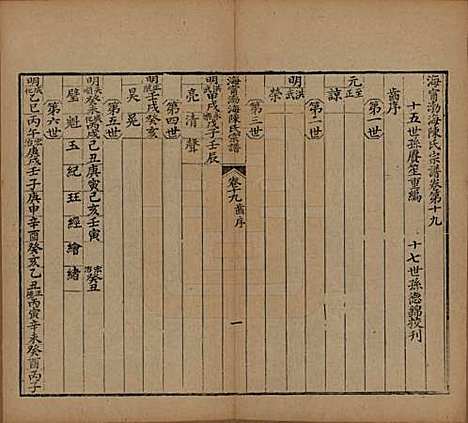 海寧渤海陳氏宗譜卷第十九
十五世孫賡笙重編 十七世孫德錦校刊
齒序
第一世
元至正
諒
第二世
明洪武
榮
第三世
海寧渤海陳氏宗譜 卷十九 齒序 一
明洪武甲戌 戊子壬辰
亮 清 聲
第四世
明 壬戌癸亥
昊 冕
第五世
明 癸未 丙戌 己丑庚寅己亥壬寅 弘治癸丑
璧 魁 玉 紀 玨 經 繪 緒
第六世
明成化乙巳丙午弘治庚戌壬子庚申辛酉癸亥乙丑正德丙寅辛未癸酉丙子